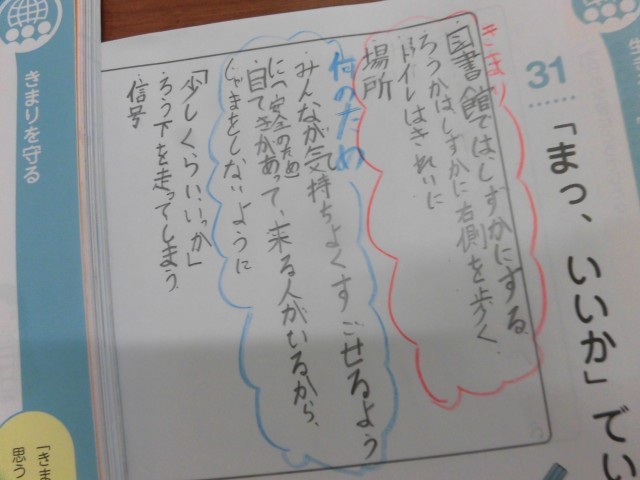 31
「まっ、いいか」でい
きまり
図書館ではしずかにする
ろうかはしずかに右側を歩く
トイレはきれいに
場所
何のため
みんなが気持ちよくすごせるよう
に(安全のため)
目てきがあって、来る人がいるから、
じゃまをしないように
「少しくらいいっか」
ろう下を走ってしまう
信号
きまりを守る
「きま
思う